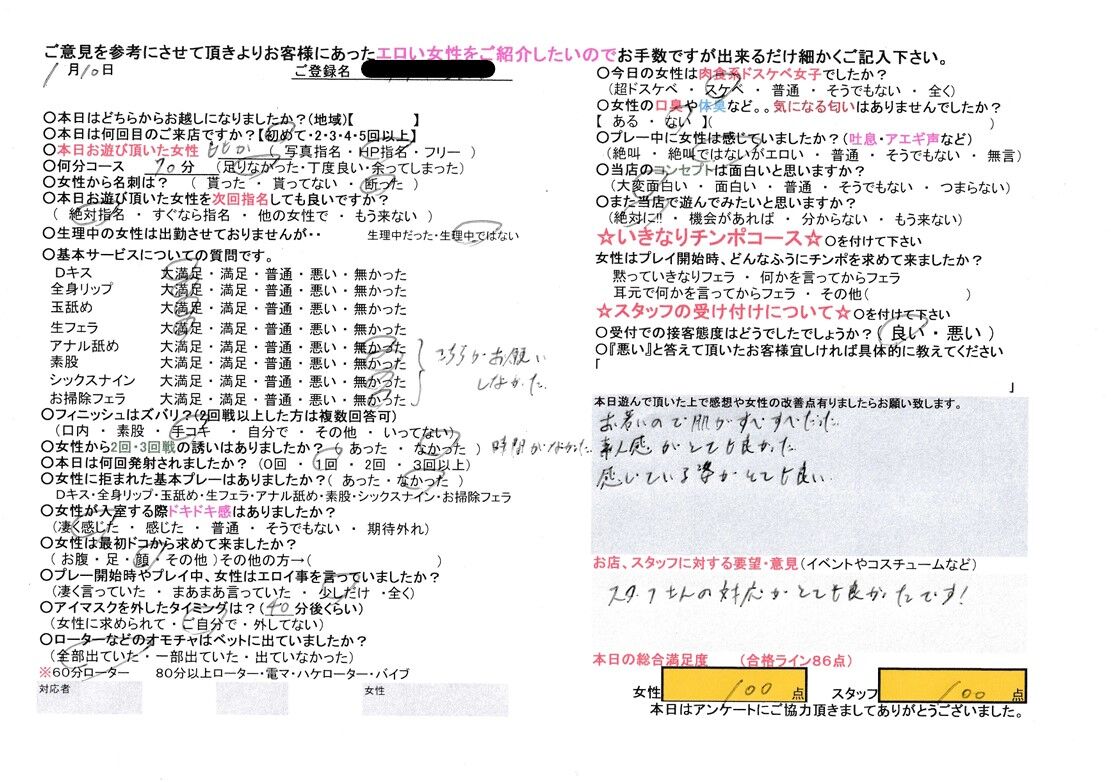 ご意見を参考にさせて頂きよりお客様にあったエロい女性をご紹介したいのでお手数ですが出来るだけ細かくご記入下さい。
1月10日
ご登録名
〇本日はどちらからお越しになりましたか?(地域)【 】
〇本日は何回目のご来店ですか?【初めて・2・3・4・5回以上】
〇本日お遊び頂いた女性 ( 写真指名・HP指名・フリー )
〇何分コース 70分 (足りなかった・丁度良い・余ってしまった)
〇女性から名刺は? ( 貰った ・ 貰ってない ・ 断った )
〇本日お遊び頂いた女性を次回指名しても良いですか?
( 絶対指名 ・ すぐなら指名 ・ 他の女性で ・ もう来ない )
〇生理中の女性は出勤させておりませんが・・ 生理中だった・生理中ではない
〇基本サービスについての質問です。
Dキス 大満足・満足・普通・悪い・無かった
全身リップ 大満足・満足・普通・悪い・無かった
玉舐め 大満足・満足・普通・悪い・無かった
生フェラ 大満足・満足・普通・悪い・無かった
アナル舐め 大満足・満足・普通・悪い・無かった
素股 大満足・満足・普通・悪い・無かった
シックスナイン 大満足・満足・普通・悪い・無かった
お掃除フェラ 大満足・満足・普通・悪い・無かった
こちらがお願い
しなかった
〇フィニッシュはズバリ?(2回戦以上した方は複数回答可)
(口内 ・ 素股 ・ 手コキ ・ 自分で ・ その他 ・ いってない)
〇女性から2回・3回戦の誘いはありましたか?( あった ・ なかった ) 時間がなかった
〇本日は何回発射されましたか? (0回 ・ 1回 ・ 2回 ・ 3回以上)
〇女性に拒まれた基本プレーはありましたか?( あった・なかった )
Dキス・全身リップ・玉舐め・生フェラ・アナル舐め・素股・シックスナイン・お掃除フェラ
〇女性が入室する際ドキドキ感はありましたか?
(凄く感じた ・ 感じた ・ 普通 ・ そうでもない ・ 期待外れ)
〇女性は最初ドコから求めて来ましたか?
( お腹 ・ 足 ・ 顔 ・ その他 )その他の方→( )
〇プレー開始時やプレイ中、女性はエロイ事を言っていましたか?
(凄く言っていた ・ まあまあ言っていた ・ 少しだけ ・ 全く)
〇アイマスクを外したタイミングは?( 40 分後くらい)
(女性に求められて ・ ご自分で ・ 外してない)
〇ローターなどのオモチャはベットに出ていましたか?
(全部出ていた ・ 一部出ていた ・ 出ていなかった)
※60分ローター 80分以上ローター・電マ・ハケローター・バイブ
対応者 女性
〇今日の女性は肉食系ドスケベ女子でしたか?
(超ドスケベ ・ スケベ ・ 普通 ・ そうでもない ・ 全く)
〇女性の口臭や体臭など。。気になる匂いはありませんでしたか?
【 ある ・ ない 】( )
〇プレー中に女性は感じていましたか?(吐息・アエギ声など)
(絶叫 ・ 絶叫ではないがエロい ・ 普通 ・ そうでもない ・ 無言)
〇当店のコンセプトは面白いと思いますか?
(大変面白い ・ 面白い ・ 普通 ・ そうでもない ・ つまらない)
〇また当店で遊んでみたいと思いますか?
(絶対に!! ・ 機会があれば ・ 分からない ・ もう来ない)
☆いきなりチンポコース☆〇を付けて下さい
女性はプレイ開始時、どんなふうにチンポを求めて来ましたか?
黙っていきなりフェラ ・ 何かを言ってからフェラ
耳元で何かを言ってからフェラ ・ その他( )
☆スタッフの受け付けについて☆〇を付けて下さい
〇受付での接客態度はどうでしたでしょうか? (良い ・ 悪い )
〇『悪い』と答えて頂いたお客様宜しければ具体的に教えてください
「 」
本日遊んで頂いた上で感想や女性の改善点有りましたらお願い致します。
お若いので肌がすべすべだった
素人感がとても良かった
感じている姿がとても良い
お店、スタッフに対する要望・意見(イベントやコスチュームなど)
スタッフさんの対応がとても良かったです!
本日の総合満足度 (合格ライン86点)
女性 100 点 スタッフ 100 点
本日はアンケートにご協力頂きましてありがとうございました。